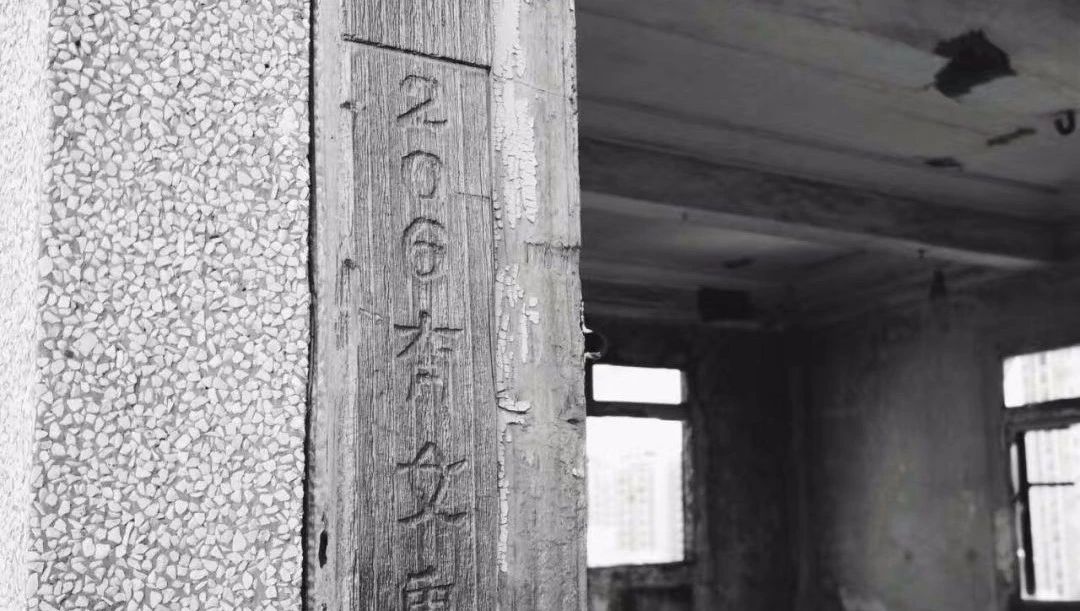 206有女